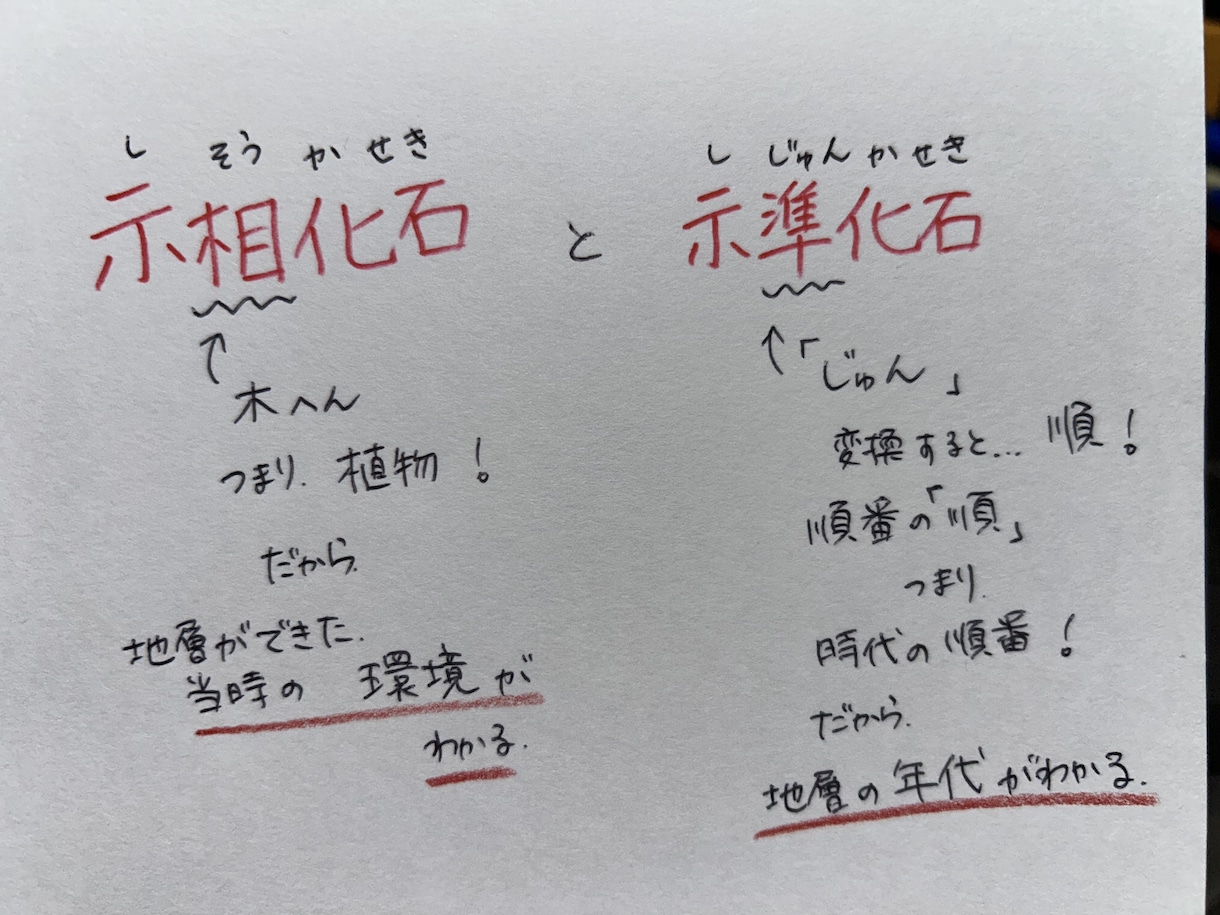 し そう か せき
示相化石
と
し じゅん か せき
示準化石
↑
木へん
つまり、植物！
だから、
地層ができた、
当時の 環境が
わかる。
↑「じゅん」
変換すると… 順！
順番の「順」
つまり、
時代の順番！
だから、
地層の年代がわかる。